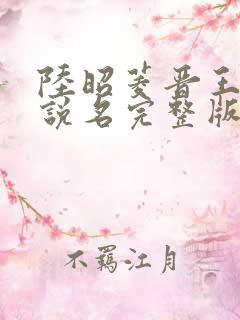 陸昭菱晋王
説名完整版
不羈江月